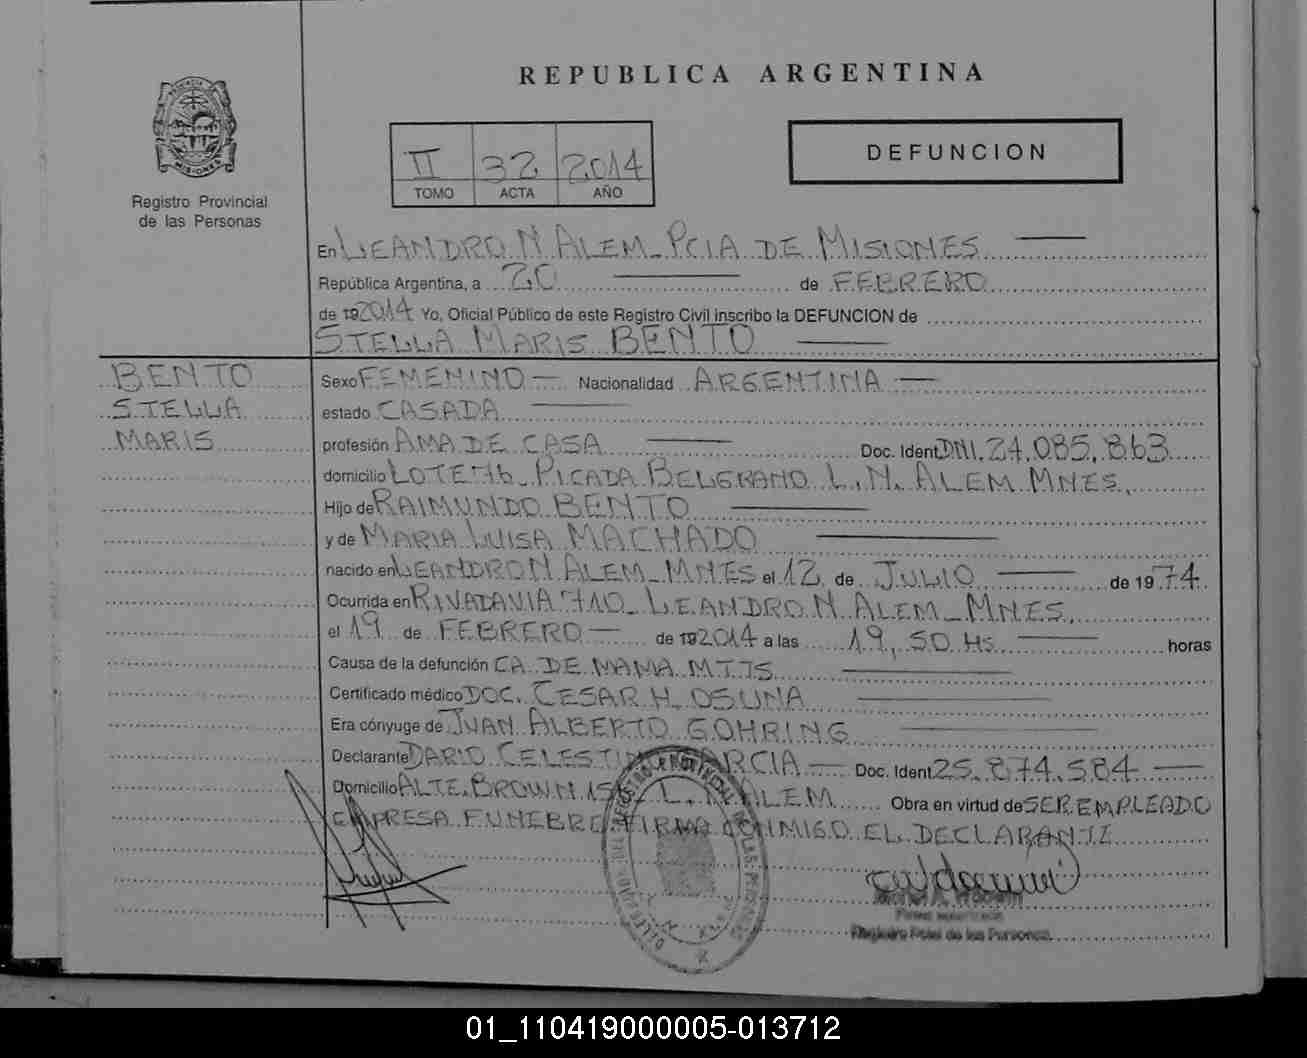 REPUBLICA ARGENTINA
II 32 2014
TOMO ACTA AÑO
DEFUNCION
MISIONES
Registro Provincial
de las Personas
En LEANDRO N. ALEM_PCIA DE MISIONES
República Argentina, a 20 de FEBRERO
de 192014 Yo, Oficial Público de este Registro Civil inscribo la DEFUNCION de
STELLA MARIS BENTO
BENTO
STELLA
MARIS
Sexo FEMENINO Nacionalidad ARGENTINA
estado CASADA
profesión AMA DE CASA Doc. Ident DNI. 24.085.863
domicilio LOTE 76_ PICADA BELGRANO L.N. ALEM MNES.
Hijo de RAIMUNDO BENTO
y de MARIA LUISA MACHADO
nacido en LEANDRO N. ALEM_MNES el 12 de JULIO de 1974
Ocurrida en RIVADAVIA 710_ LEANDRO N. ALEM_MNES.
el 19 de FEBRERO de 192014 a las 19,50 Hs horas
Causa de la defunción CA. DE MAMA MTTS
Certificado médico DOC. CESAR H. OSUNA
Era cónyuge de JUAN ALBERTO GOHRING
Declarante DARIO CELESTINO GARCIA Doc. Ident 25.874.584
Domicilio ALTE. BROWN L.N. ALEM Obra en virtud de SER EMPLEADO
EMPRESA FUNEBRE FIRMA CONMIGO EL DECLARANTE
Registro Pcial de las Personas
01_110419000005-013712